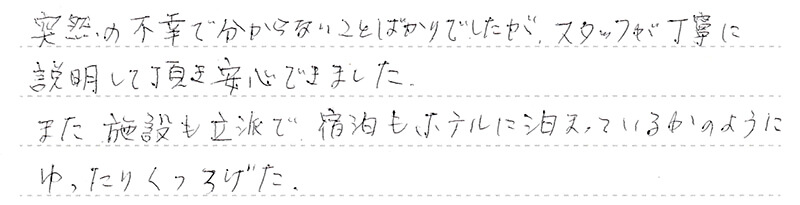 突然の不幸で分からないことばかりでしたが、スタッフが丁寧に
説明して頂き安心できました.
また施設も立派で、宿泊もホテルに泊まっているかのように
ゆったりくつろげた.